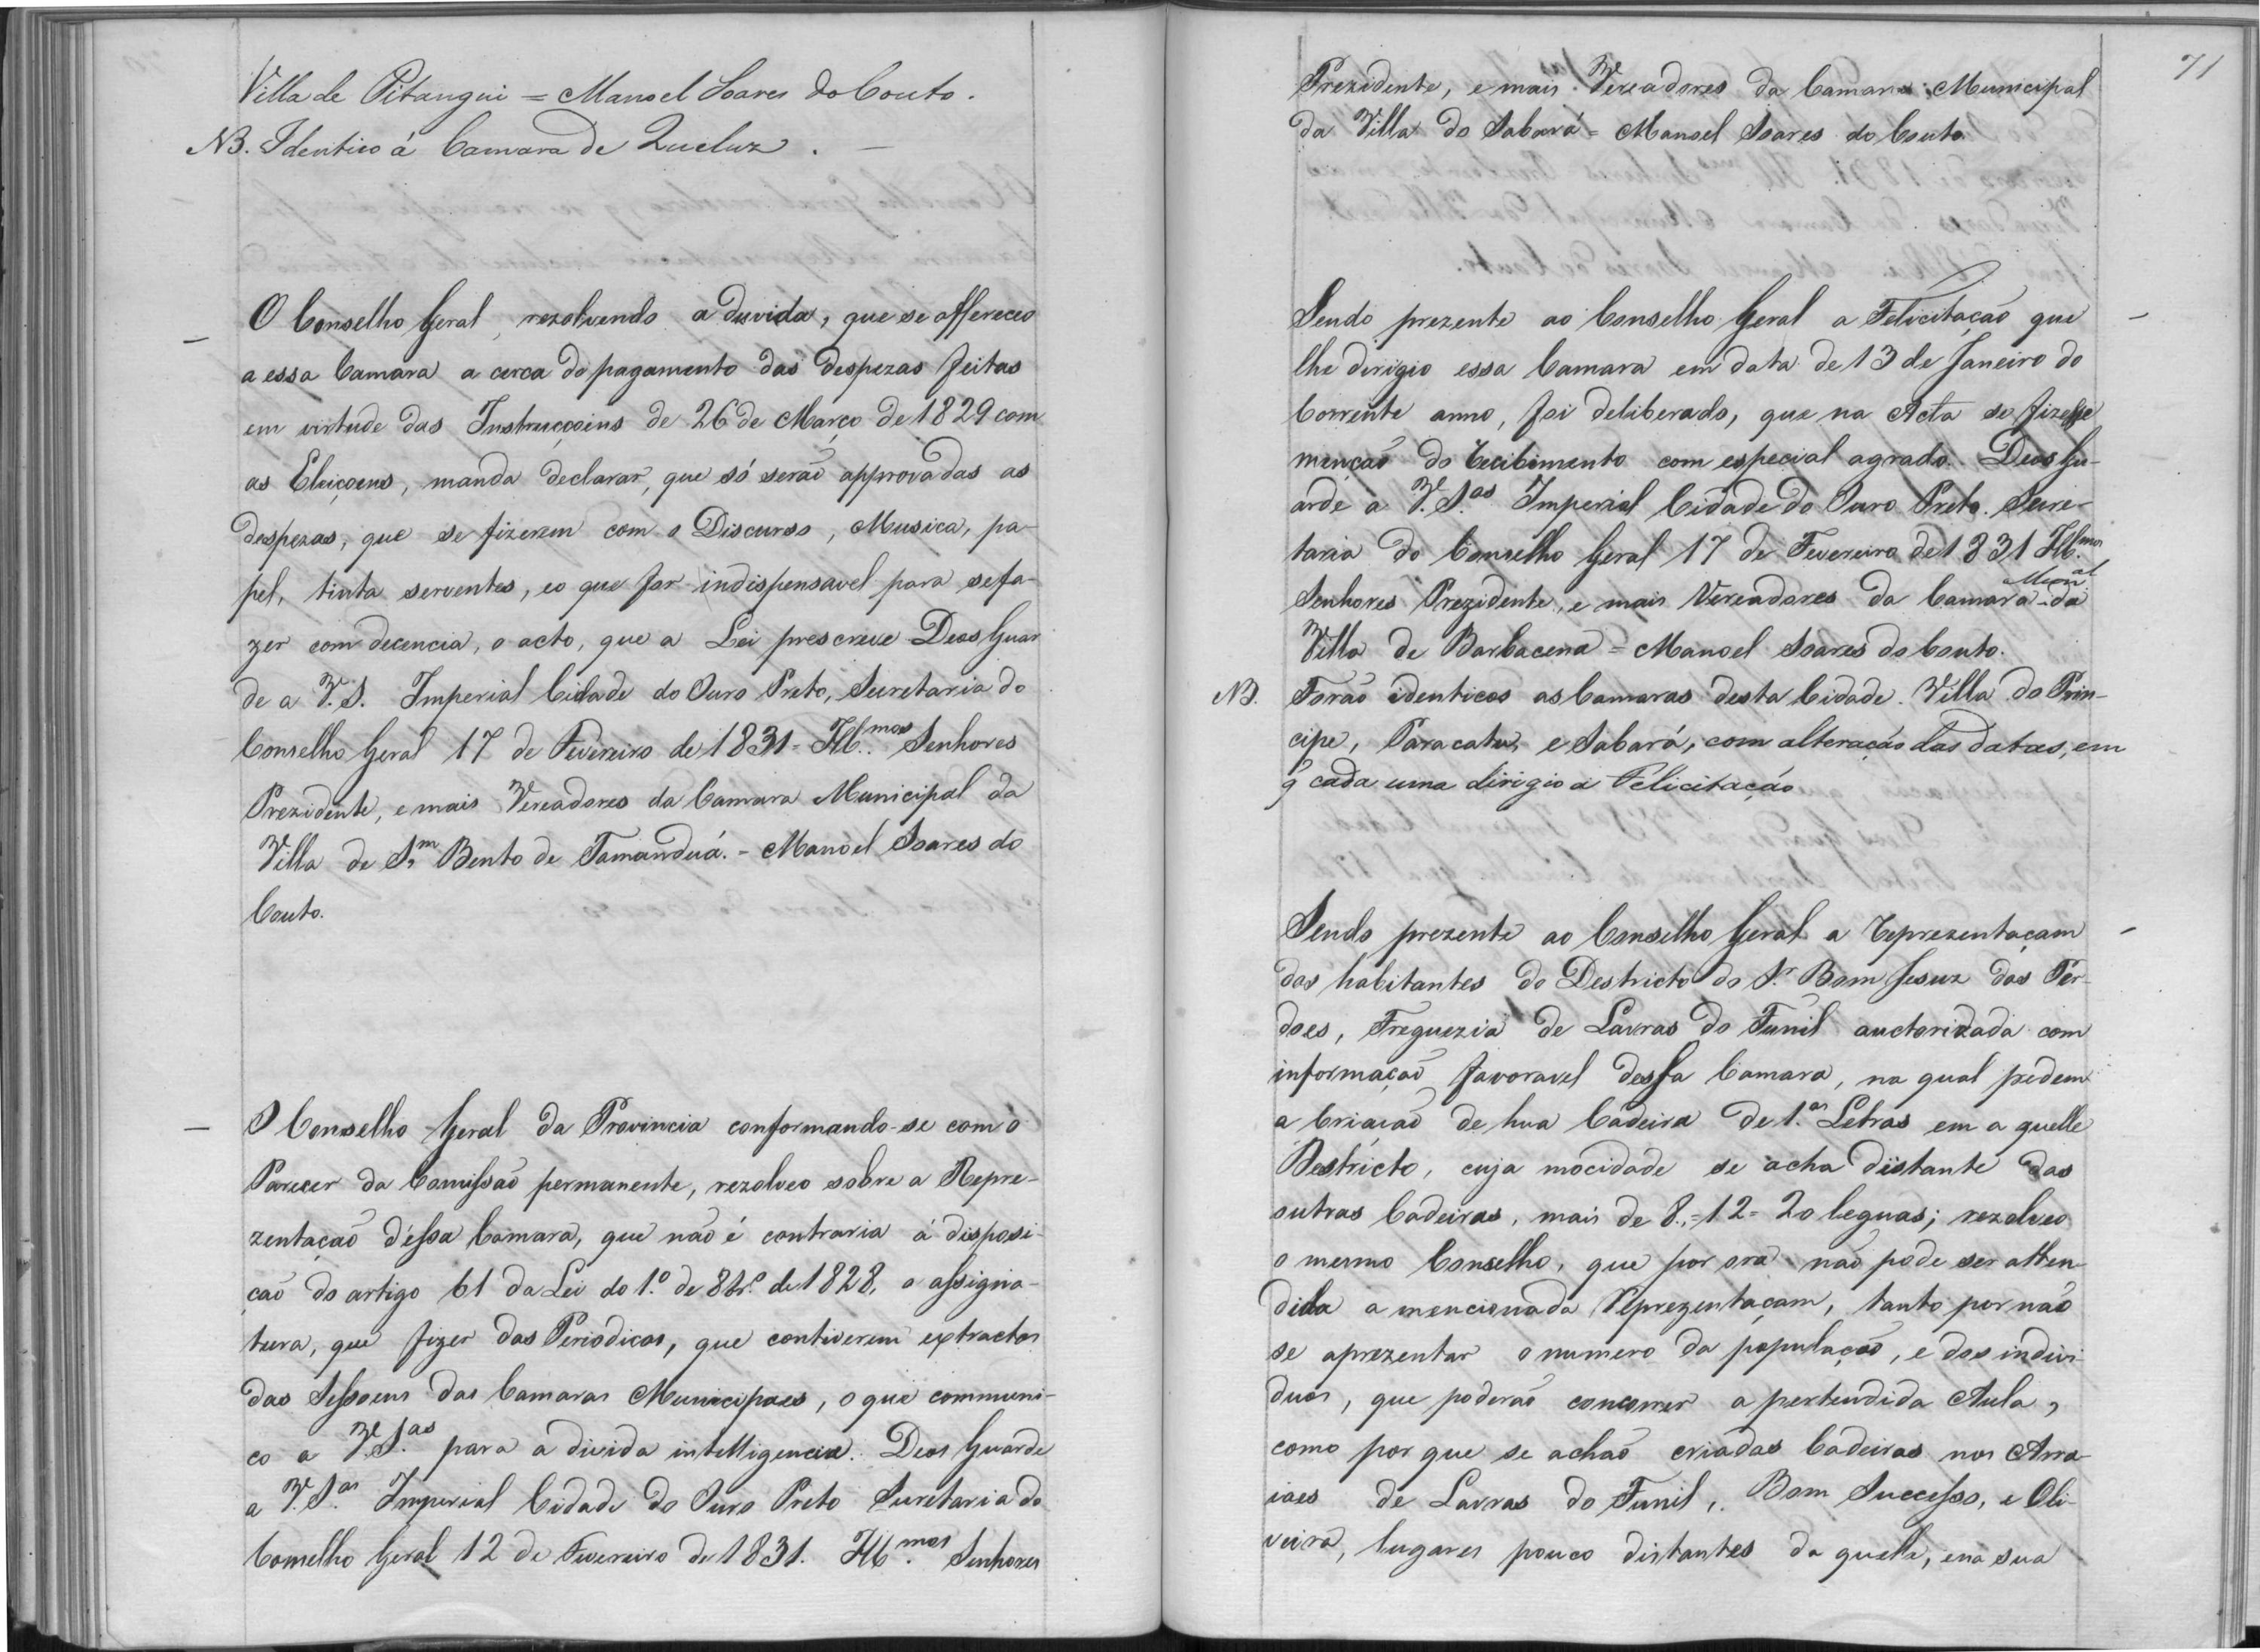 Villa de Pitangui = Manoel Soares do Couto.
NB. Identico á Camara de Queluz. —
O Conselho Geral, rezolvendo a duvida, que se offereceo
a essa Camara a cerca do pagamento das despezas feitas
em virtude das Instrucçoens de 26 de Março de 1829 com
as Eleiçoens, manda declarar, que só serão approvadas as
despezas, que se fizerem com o Discurso, Musica, pa-
pel, tinta serventes, eo que for indispensavel para se fa-
zer com decencia, o acto, que a Lei prescreve Deos Guar
de a V. S. Imperial Cidade do Ouro Preto, Secretaria do
Conselho Geral 17 de Fevereiro de 1831 = Ill.mos Senhores
Prezidente, e mais Vereadores da Camara Municipal da
Villa de Sm Bento de Tamanduá. - Manoel Soares do
Couto.
O Conselho Geral da Provincia conformando-se com o
Parecer da Comissão permanente, rezolveo sobre a Repre-
zentação d'essa Camara, que não é contraria á disposi-
ção do artigo 61 da Lei do 1.º de 8br.º de 1828, a assigna-
tura, que fizer dos Periodicos, que contiverem extractos
das Sessoens das Camaras Municipaes, o que communi-
co a V. S.as para a divida intelligencia. Deos Guarde
a V. S.as Imperial Cidade do Ouro Preto Secretaria do
Conselho Geral 12 de Fevereiro de 1831. Ill.mos Senhores
71
Prezidente, e mais Vereadores da Camara Municipal
da Villa do Sabará = Manoel Soares do Couto.
Sendo prezente ao Conselho Geral a Felicitação que
lhe dirigio essa Camara em data de 13 de Janeiro do
Corrente anno, foi deliberado, que na Acta se fizesse
menção do recibimento com especial agrado. Deos Gu-
arde a V. S.as Imperial Cidade do Ouro Preto. Secre-
taria do Conselho Geral 17 de Fevereiro de 1831 Ill.mos
Senhores Prezidente, e mais Vereadores da Camara Munal da
Villa de Barbacena = Manoel Soares do Couto.
NB. Forão identicos as Camaras desta Cidade. Villa do Prin-
cipe, Paracatu, e Sabará, com alteração das datas, em
q̃ cada uma dirigio a Felicitação
Sendo prezente ao Conselho Geral a reprezentaçam
dos habitantes do Destricto do Sr. Bom Jesuz dos Per-
does, Freguezia de Lavras do Funil auctorizada com
informação favoravel dessa Camara, na qual pedem
a Criação de hua Cadeira de 1.as Letras em a quelle
Destricto, cuja mocidade se acha distante das
outras Cadeiras, mais de 8,=12=20 leguas; rezolveo
o mesmo Conselho, que por ora não pode ser atten-
dida a mencionada reprezentaçam, tanto por não
se aprezentar o numero da população, e dos indivi-
duos, que poderão concorrer a pertendida Aula,
como por que se achão criadas Cadeiras nos Arra-
iaes de Lavras do Funil, Bom Successo, e Oli-
veira, lugares pouco distantes da quelle, ena sua